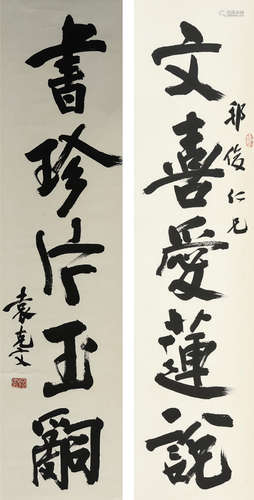 文喜愛蓮說
邦俊仁兄
書珍片玉辭
袁克文